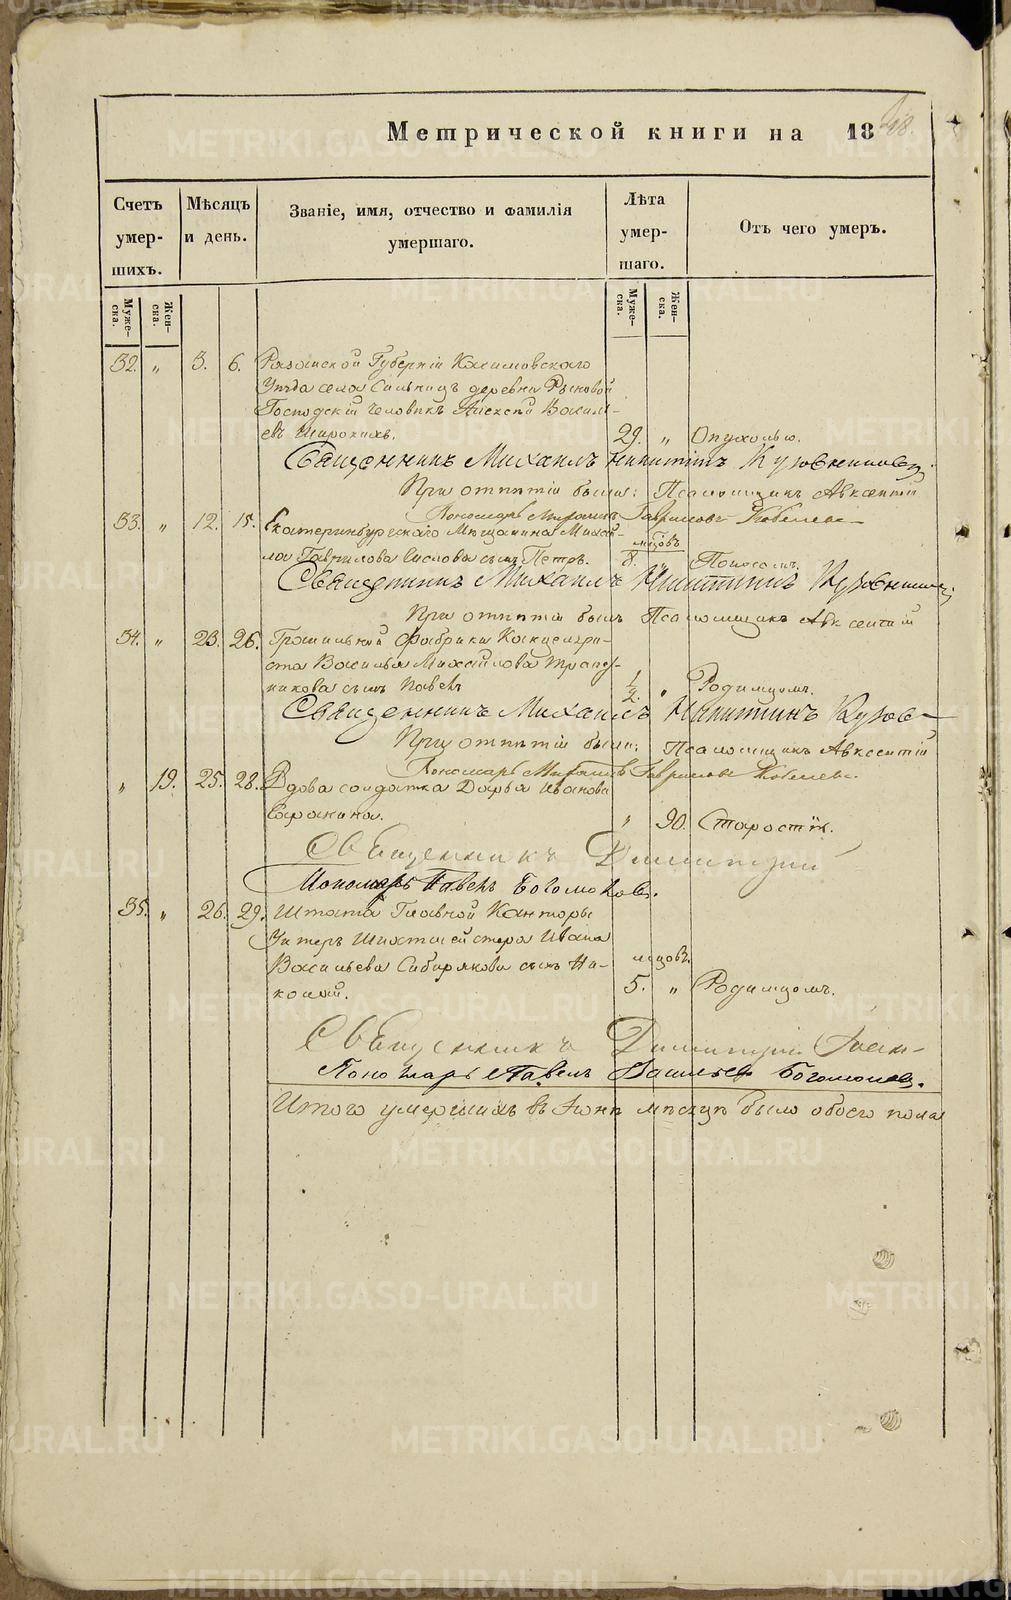 Метрической книги на 18
Счетъ умер- шихъ.
Мѣсяцъ и день.
Званіе, имя, отчество и фамилія умершаго.
Лѣта умер- шаго.
Отъ чего умеръ.
Муже- ска.
Жен- ска.
Муже- ска.
Жен- ска.
32. „ 3. 6. Рязанской Губерніи Касимовскаго
Уѣзда села деревни
Господскій человѣкъ Алексѣй Василь-
евъ Широкихъ. 29. „ Опухолью.
Священникъ Михаилъ Никитинъ
При отпѣтіи были: Псаломщикъ Авксентій
Пономарь Гавриловъ
33. „ 12. 15. Екатеринбургскаго Мѣщанина Михай-
ла Гаврилова сынъ Петръ. мѣсяцовъ 8. „ Поносомъ.
Священникъ Михаилъ Никитинъ
При отпѣтіи былъ Псаломщикъ Авксентій
34. „ 23. 26. Гранильной Фабрики Канцеляри-
ста Василья Михайлова Трапез-
никова сынъ Павелъ 1/2. „ Родимцомъ.
Священникъ Михаилъ Никитинъ
При отпѣтіи были: Псаломщикъ Авксентій
Пономарь Гавриловъ
„ 19. 25. 28. Вдова солдатка Дарья Иванова
Сарапкина. „ 90. Старостію.
Священникъ Димитрій
Пономарь Павелъ Богомоловъ.
35. „ 26. 29. Штата Главной Канторы
Унтеръ Шихтмейстера Ивана
Васильева Сибирякова сынъ Ни-
колай. мѣсяцовъ 5. „ Родимцомъ.
Священникъ Димитрій
Пономарь Павелъ Васильевъ Богомоловъ.
Итого умершихъ въ Іюнѣ мѣсяцѣ было обоего пола
METRIKI.GASO-URAL.RU